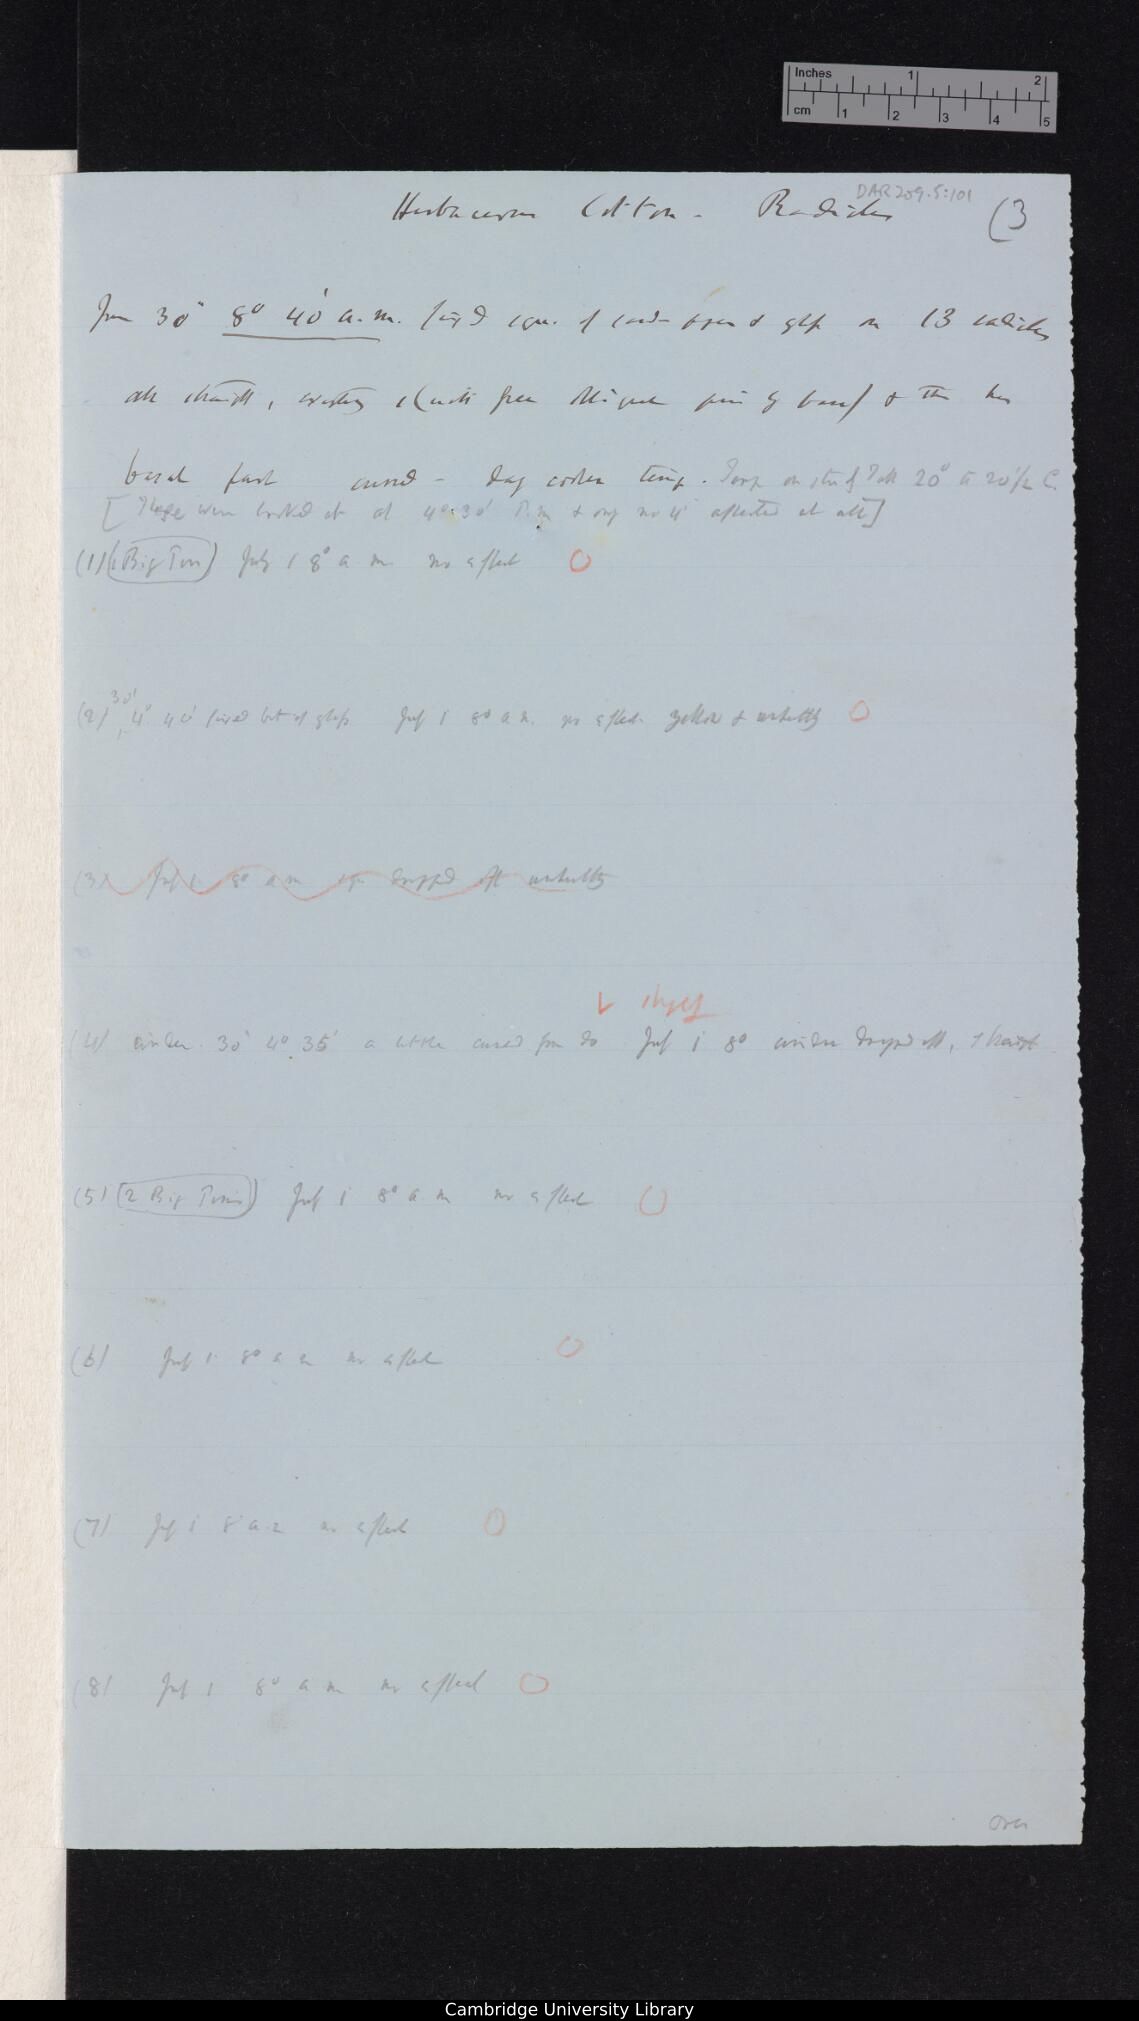 Inches 1 2
cm 1 2 3 4 5
DAR 209.5:101
Herbaceous Cotton - Radicles (3
June 30" 8° 40' a.m. fixed sqrs. of card- & glass on 13 radicles
all straight, & the
basal part curved - day cooler temp. Temp 20° to 20 1/2 C.
[These were looked at at 4° 30' P.m & only no 4 affected at all]
(1) (1 Big Tin) July 1 8° a m no effect O
30'
(2) 4° 40' fixed bit of glass July 1 8° a m. no effect yellow & unhealthy O
(3) July 1 8° a m sqr dropped off unhealthy
(4) cinder 30' 4° 35' a little curved from do July 1 8° cinder dropped off, straight
(5) (2 Big Tins) July 1 8° a m no effect O
(6) July 1 8° a m no effect O
(7) July 1 8° a m no effect O
(8) July 1 8° a m no effect O
Over
Cambridge University Library